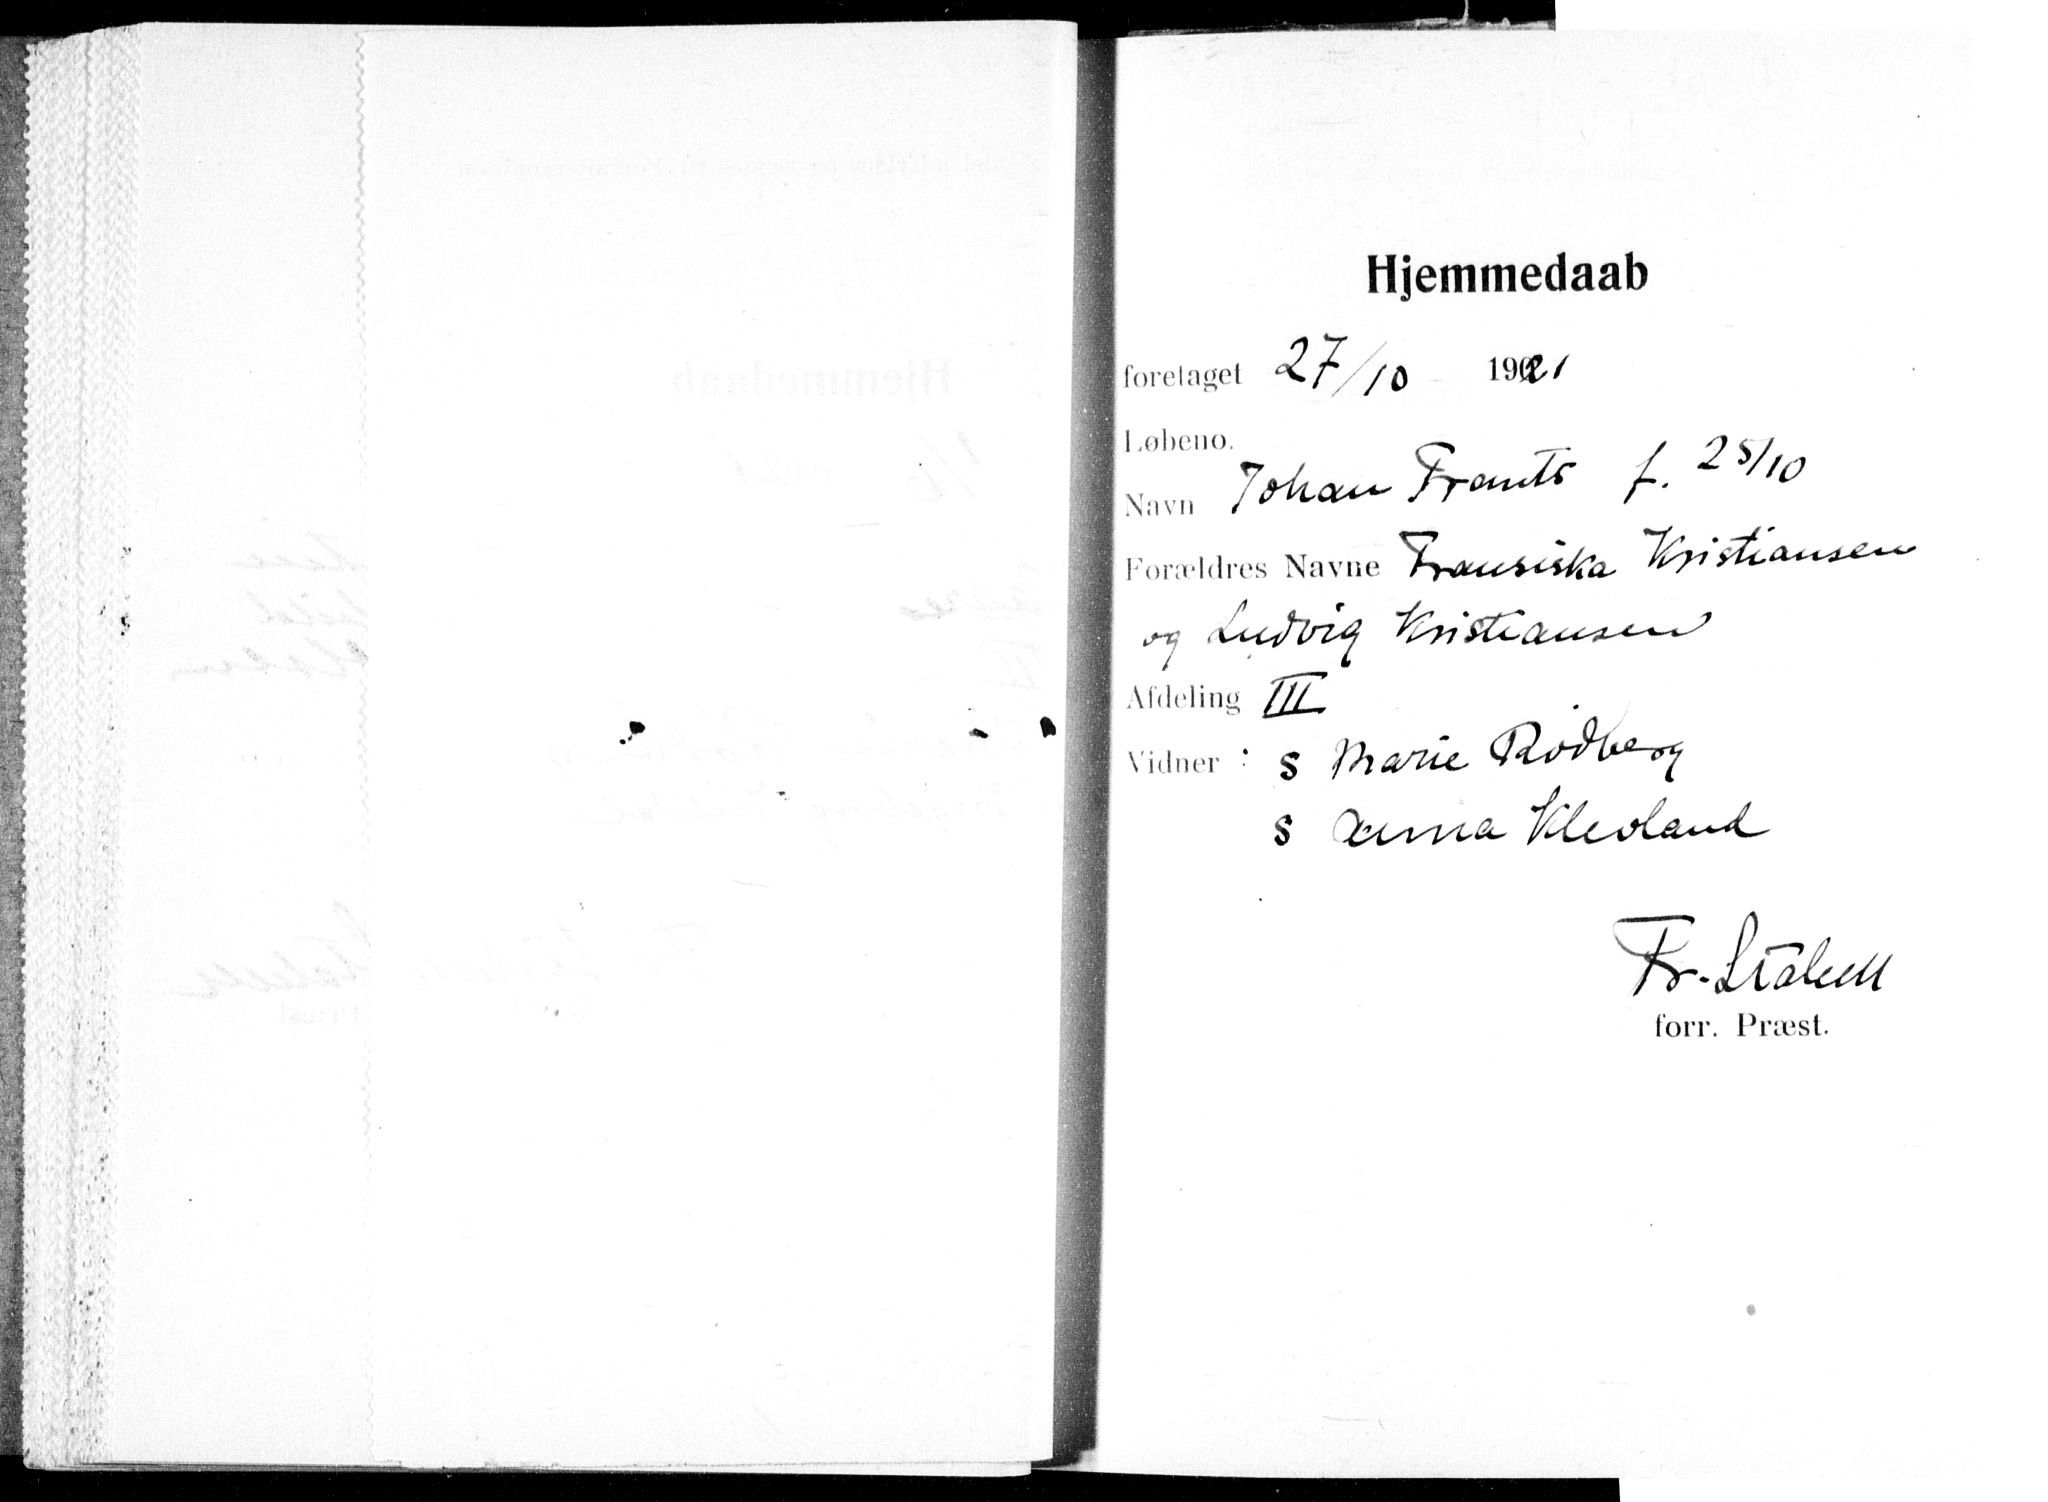 Hjemmedaab
foretaget 27/10 1921
Løbeno.
Navn Johan Frants f. 25/10
Forældres Navne Fransiska Kristiansen
og Ludvig Kristiansen
Afdeling III
Vidner : S Marie Rødberg
S Anna Klevland
Fr. Stabell
forr. Præst.